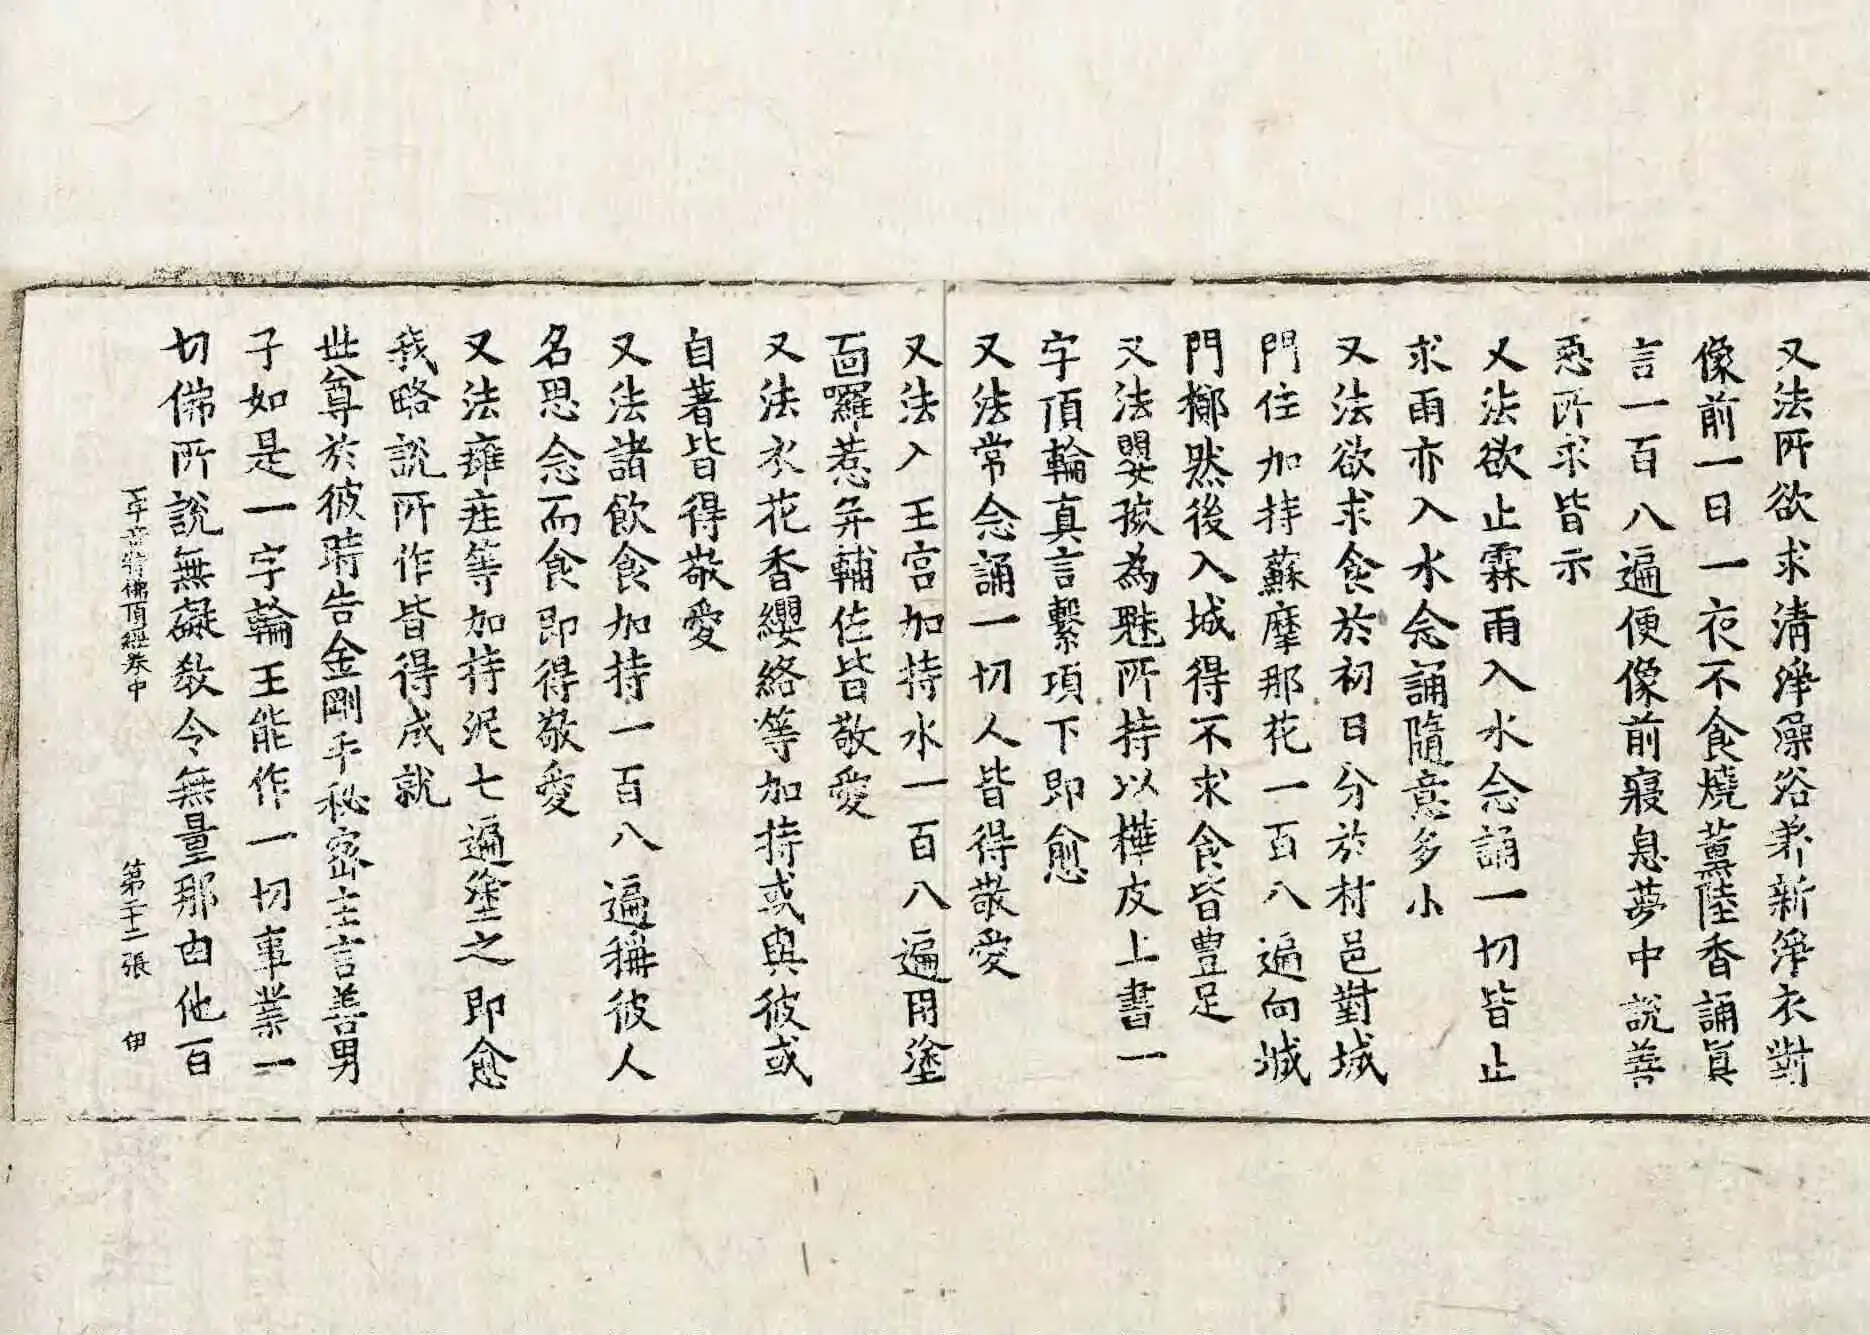 又法所欲求清淨澡浴著新淨衣對
像前一日一夜不食燒薰陸香誦真
言一百八遍便像前寢息夢中說善
惡所求皆示
又法欲止霖雨入水念誦一切皆止
求雨亦入水念誦隨意多小
又法欲求食於初日分於村邑對城
門住加持蘇摩那花一百八遍向城
門擲然後入城得不求食皆豊足
又法嬰孩為魅所持以樺皮上書一
字頂輪真言繫項下即愈
又法常念誦一切人皆得敬愛
又法入王宮加持水一百八遍用塗
面囉惹并輔佐皆敬愛
又法衣花香纓絡等加持或與彼或
自著皆得敬愛
又法諸飲食加持一百八遍稱彼人
名思念而食即得敬愛
又法癰疰等加持泥七遍塗之即愈
我略說所作皆得成就
世尊於彼時告金剛手秘密主言善男
子如是一字輪王能作一切事業一
切佛所說無礙教令無量那由他百
一字奇特佛頂經卷中 第二十二張 伊